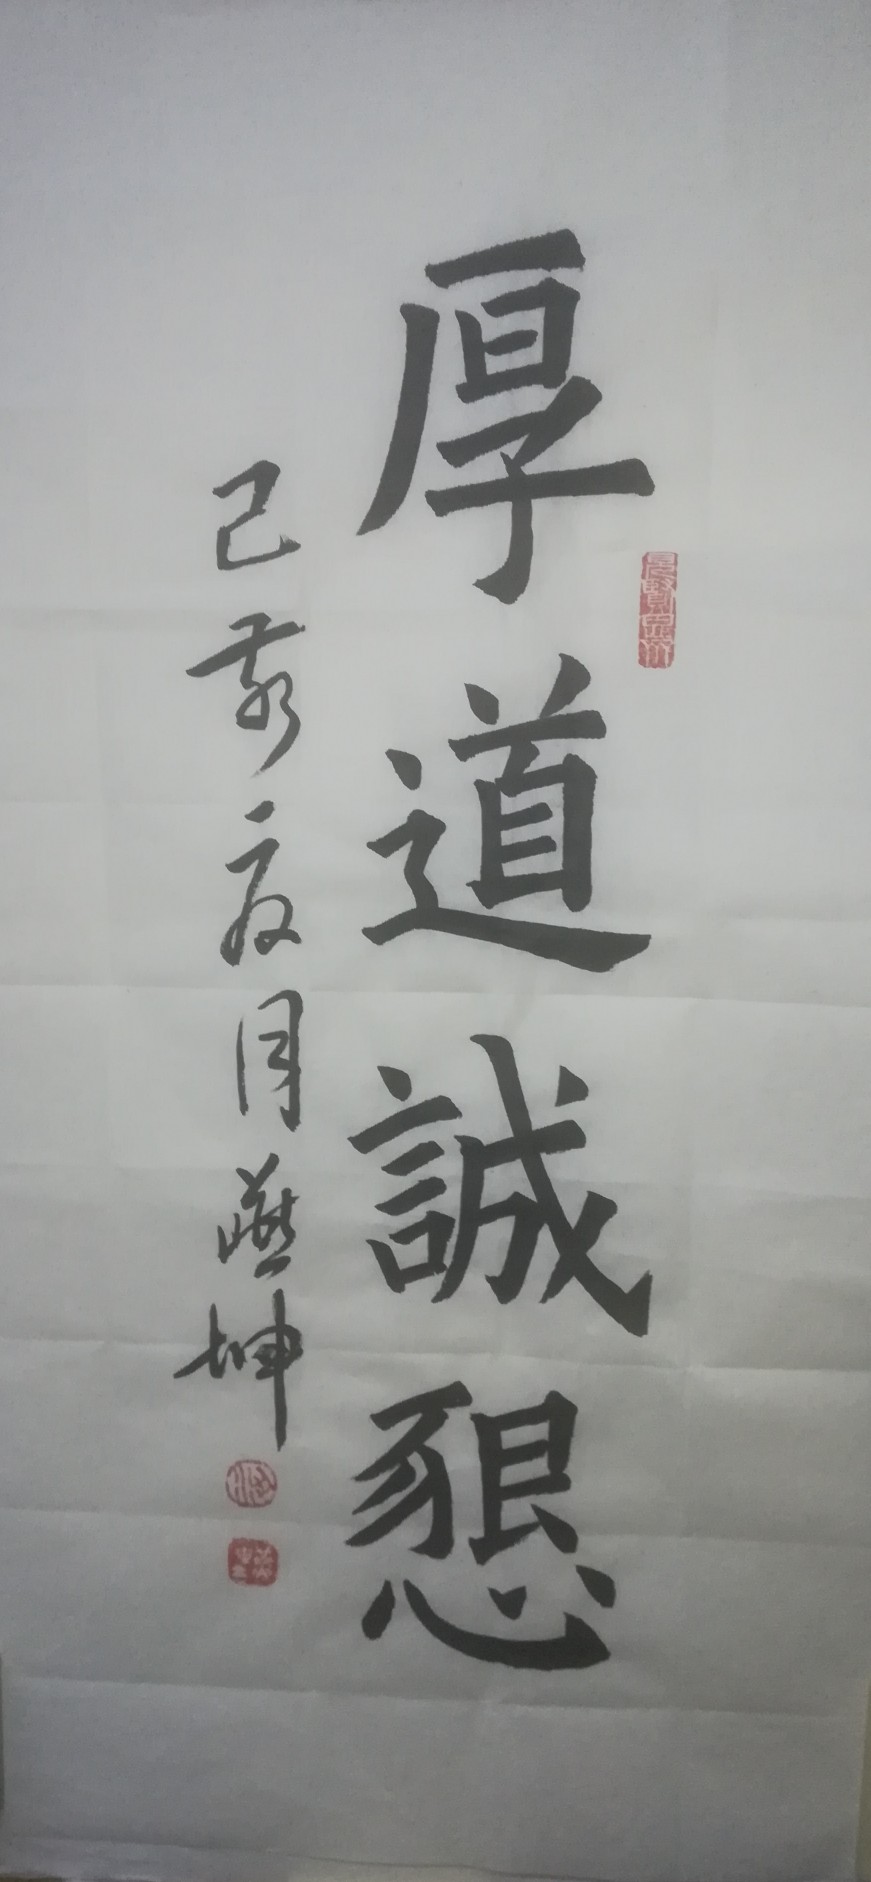 厚道誠懇
己亥夏月燕坤